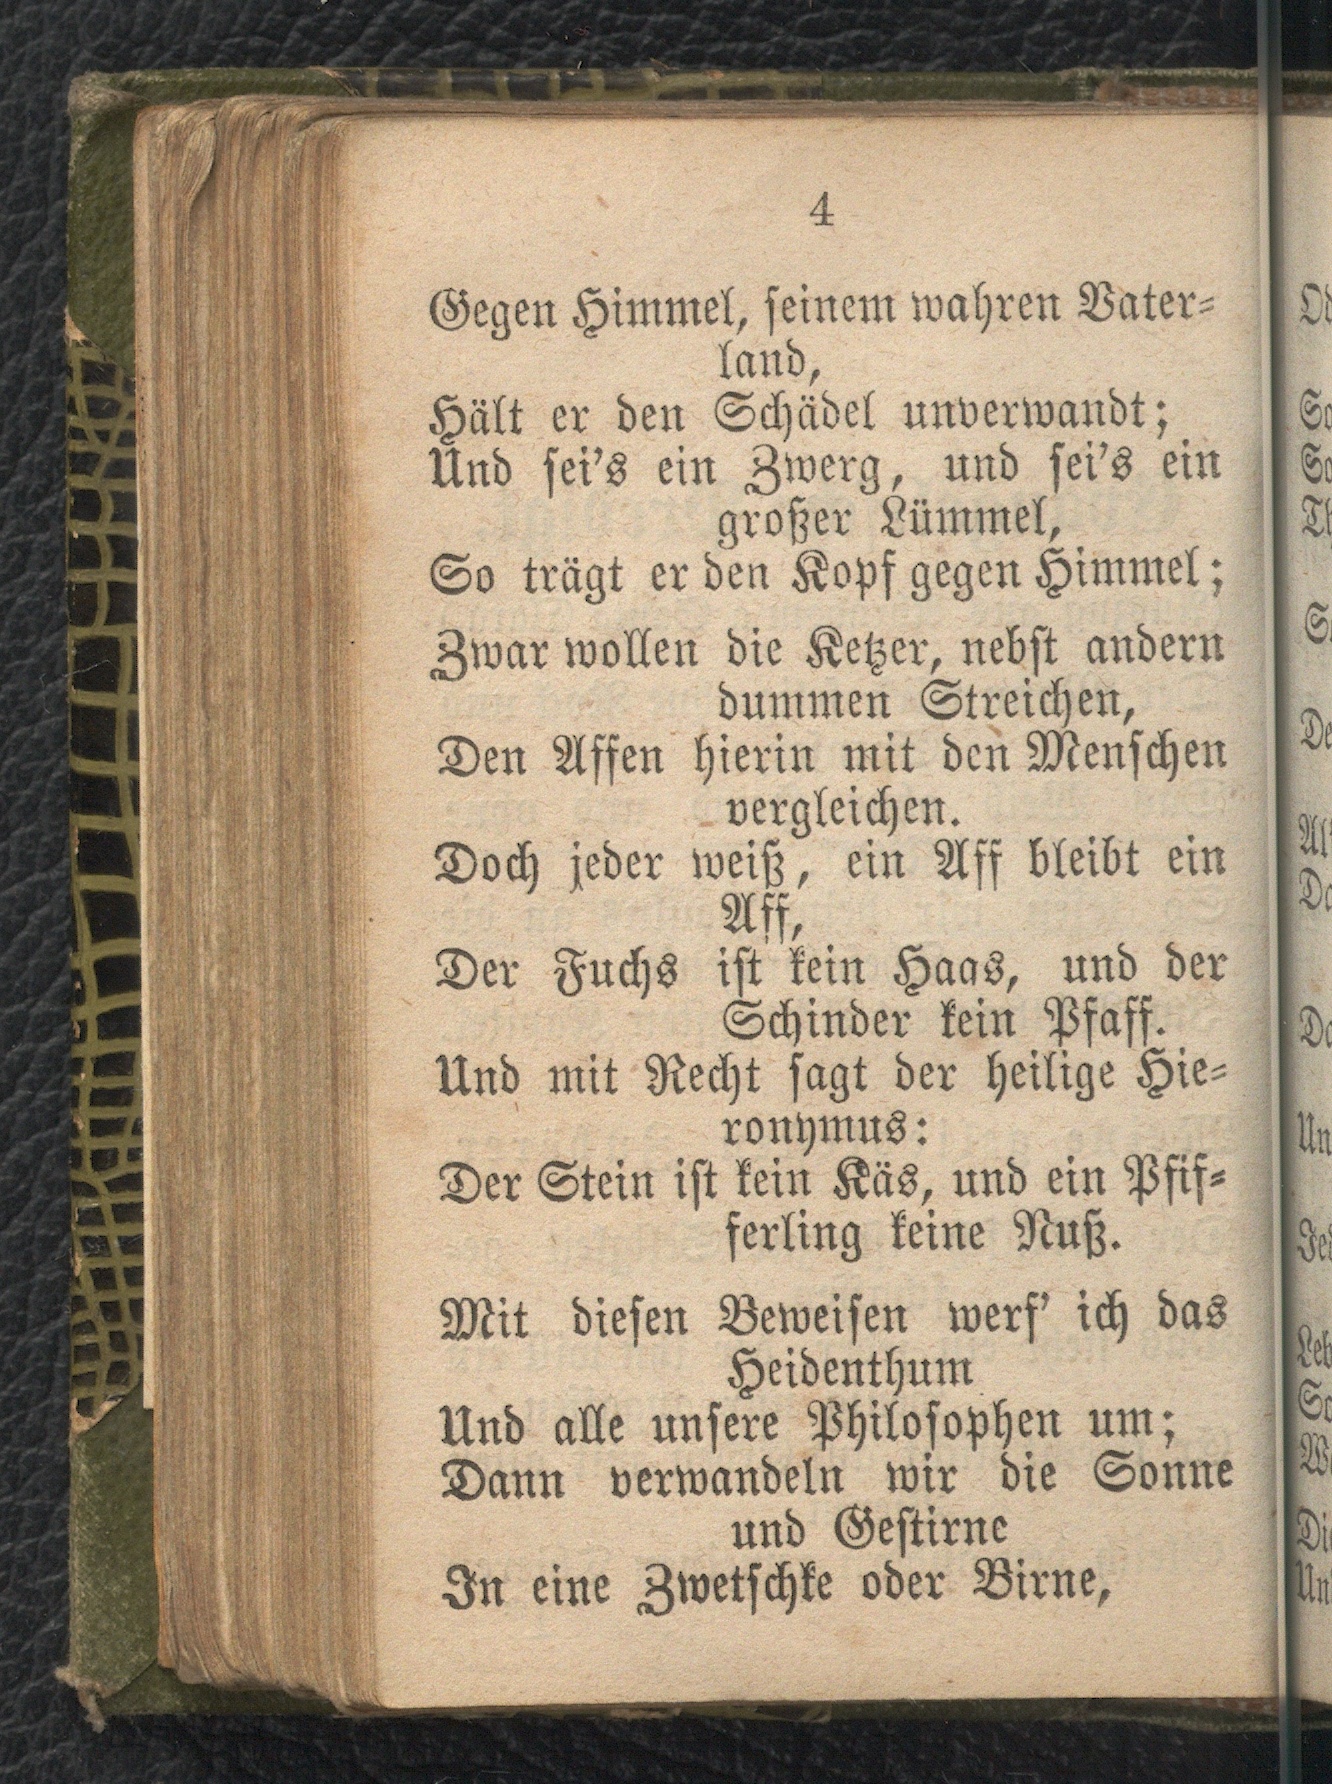 4
Gegen Himmel, seinem wahren Vater-
land,
Hält er den Schädel unverwandt;
Und sei's ein Zwerg, und sei's ein
großer Lümmel,
So trägt er den Kopf gegen Himmel;
Zwar wollen die Ketzer, nebst andern
dummen Streichen,
Den Affen hierin mit den Menschen
vergleichen.
Doch jeder weiß, ein Aff bleibt ein
Aff,
Der Fuchs ist kein Haas, und der
Schinder kein Pfaff.
Und mit Recht sagt der heilige Hie-
ronymus:
Der Stein ist kein Käs, und ein Pfif-
ferling keine Nuß.
Mit diesen Beweisen werf' ich das
Heidenthum
Und alle unsere Philosophen um;
Dann verwandeln wir die Sonne
und Gestirne
In eine Zwetschke oder Birne,